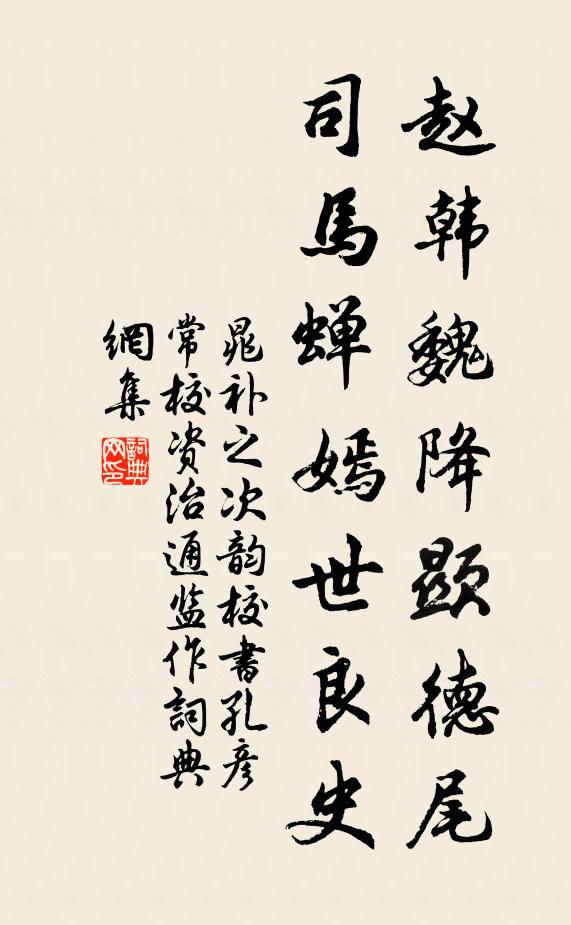 赵韩魏降顕德尾
司馬蝉嫣世良史
晁补之次韵校書孔彦
常校资治通监作詞典
網集
詞典網印